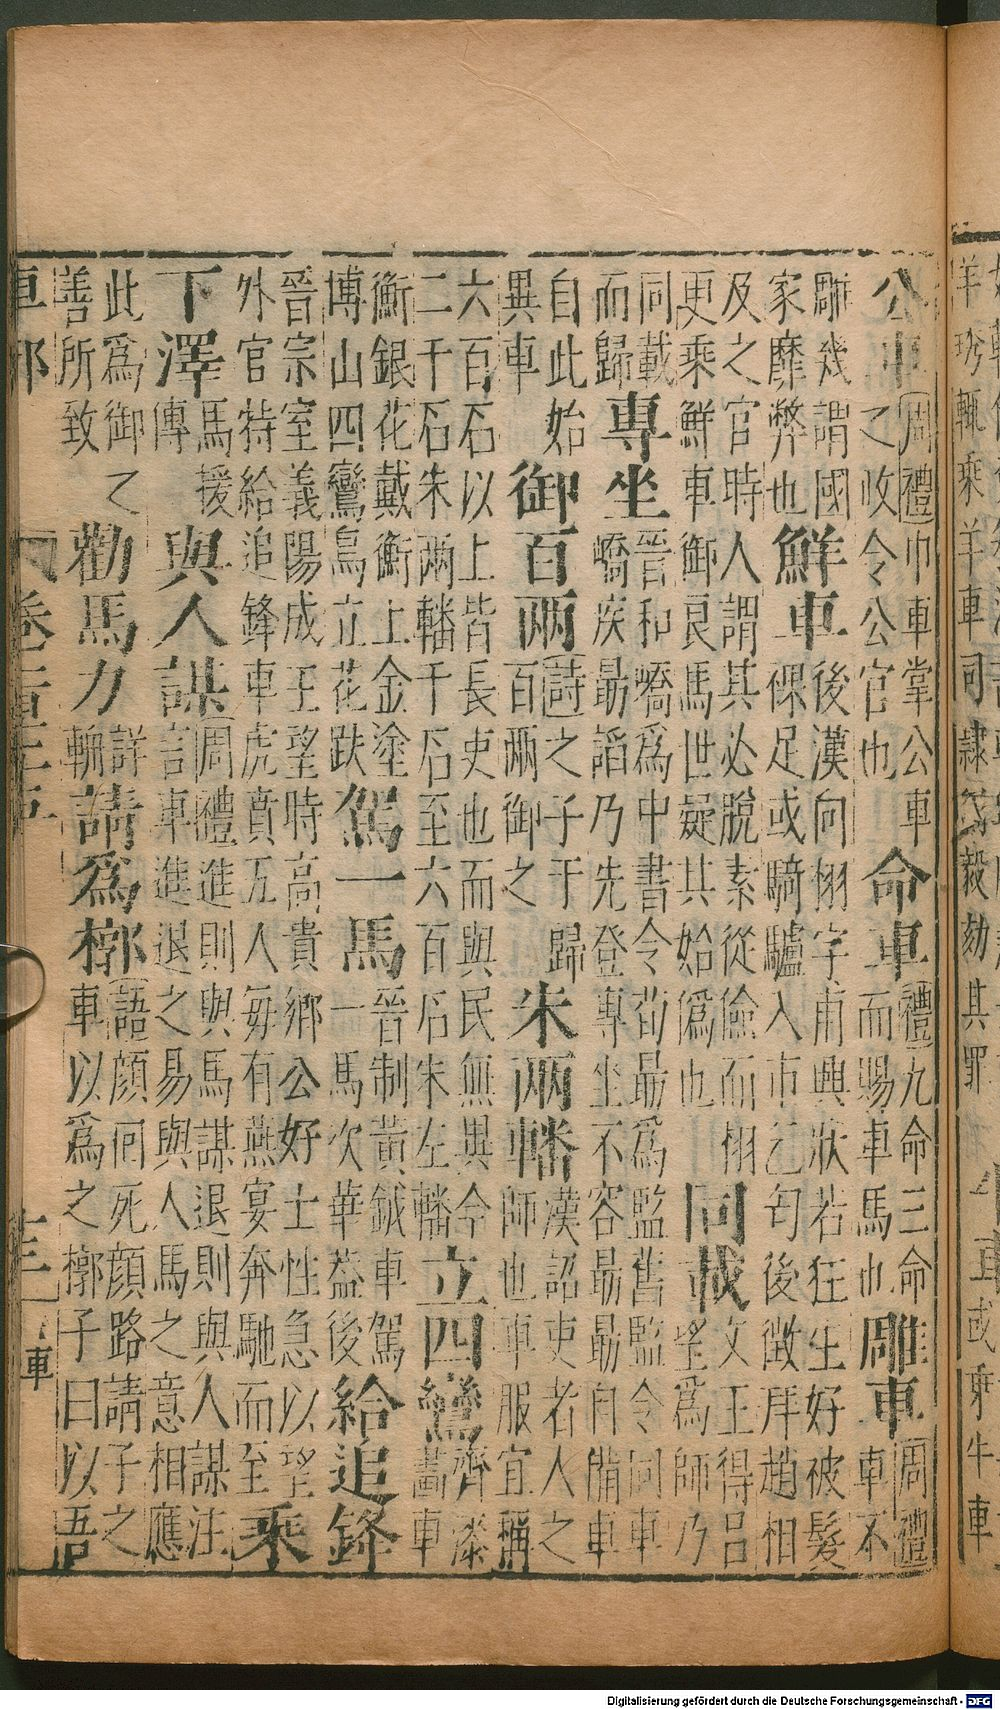 公車周禮巾車掌公車之收令公官也命車禮九命三命而賜車馬也雕車周禮車不
雕幾謂國家靡弊也鮮車後漢向栩字甫興狀若狂生好被髮裸足或騎驢入市乞匄後徵拜趙相
及之官時人謂其必脫素從儉而栩更乘鮮車御良馬世疑其始偽也同載文王得呂望爲師乃
同載而歸專坐晉和嶠爲中書令荀最爲監舊監令同車嶠疾最謟乃先登專坐不容最最自備車
自此始異車御百兩詩之子于歸百兩御之朱兩轓漢詔吏者人之師也車服宜稱
六百石以上皆長吏也而與民無異今二千石朱兩轓千石至六百石朱左轓立四鸞齊漆畫車
衡銀花戴衡上金塗博山四鸞鳥立花趺駕一馬晉制黃鉞車駕一馬次華蓋後給追鋒
晉宗室義陽成王望時高貴鄉公好士性急以望外官特給追鋒車虎賁五人每有燕宴奔馳而至乘
下澤馬援傳與人謀周禮進則與馬謀退則與人謀注言車進退之易與人馬之意相應
此爲御之善所致勸馬力詳輈請爲椁語顏回死顏路請子之車以爲之椁子曰以吾
車部
車
Digitalisierung gefördert durch die Deutsche Forschungsgemeinschaft - DFG